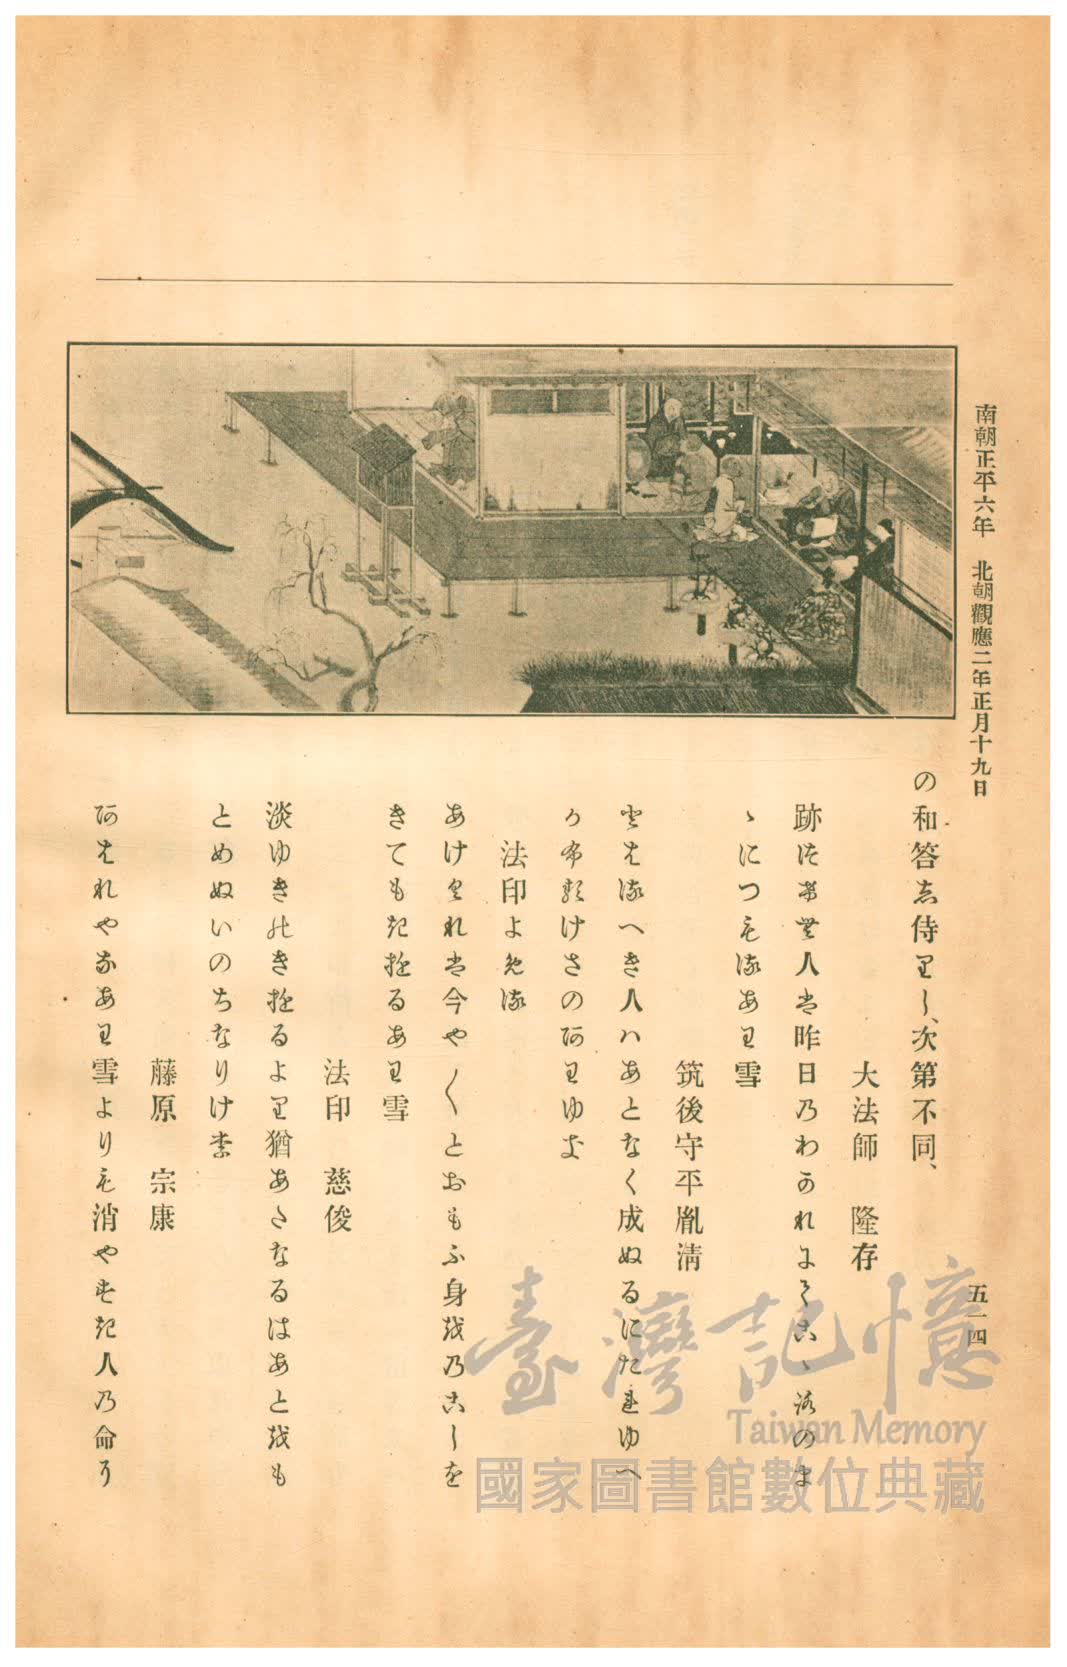 南朝正平六年　北朝觀應二年正月十九日
五一四
の和答し侍りし、次第不同、
大法師　隆存
跡つけむ人は昨日のわかれにてこゝろのま
ゝにつもるあわ雪
筑後守平胤淸
とはるへき人ハあとなく成ぬるにたれゆへ
かふるけさのあわゆき
法印よめる
あけぬれは今や〳〵とおもふ身をのこしを
きてもきゆるあわ雪
法印　慈俊
淡ゆきのきゆるより猶あたなるはあとをも
とめぬいのちなりけり
藤原　宗康
あはれやなあわ雪よりも消やすき人の命う
臺灣記憶
Taiwan Memory
國家圖書館數位典藏